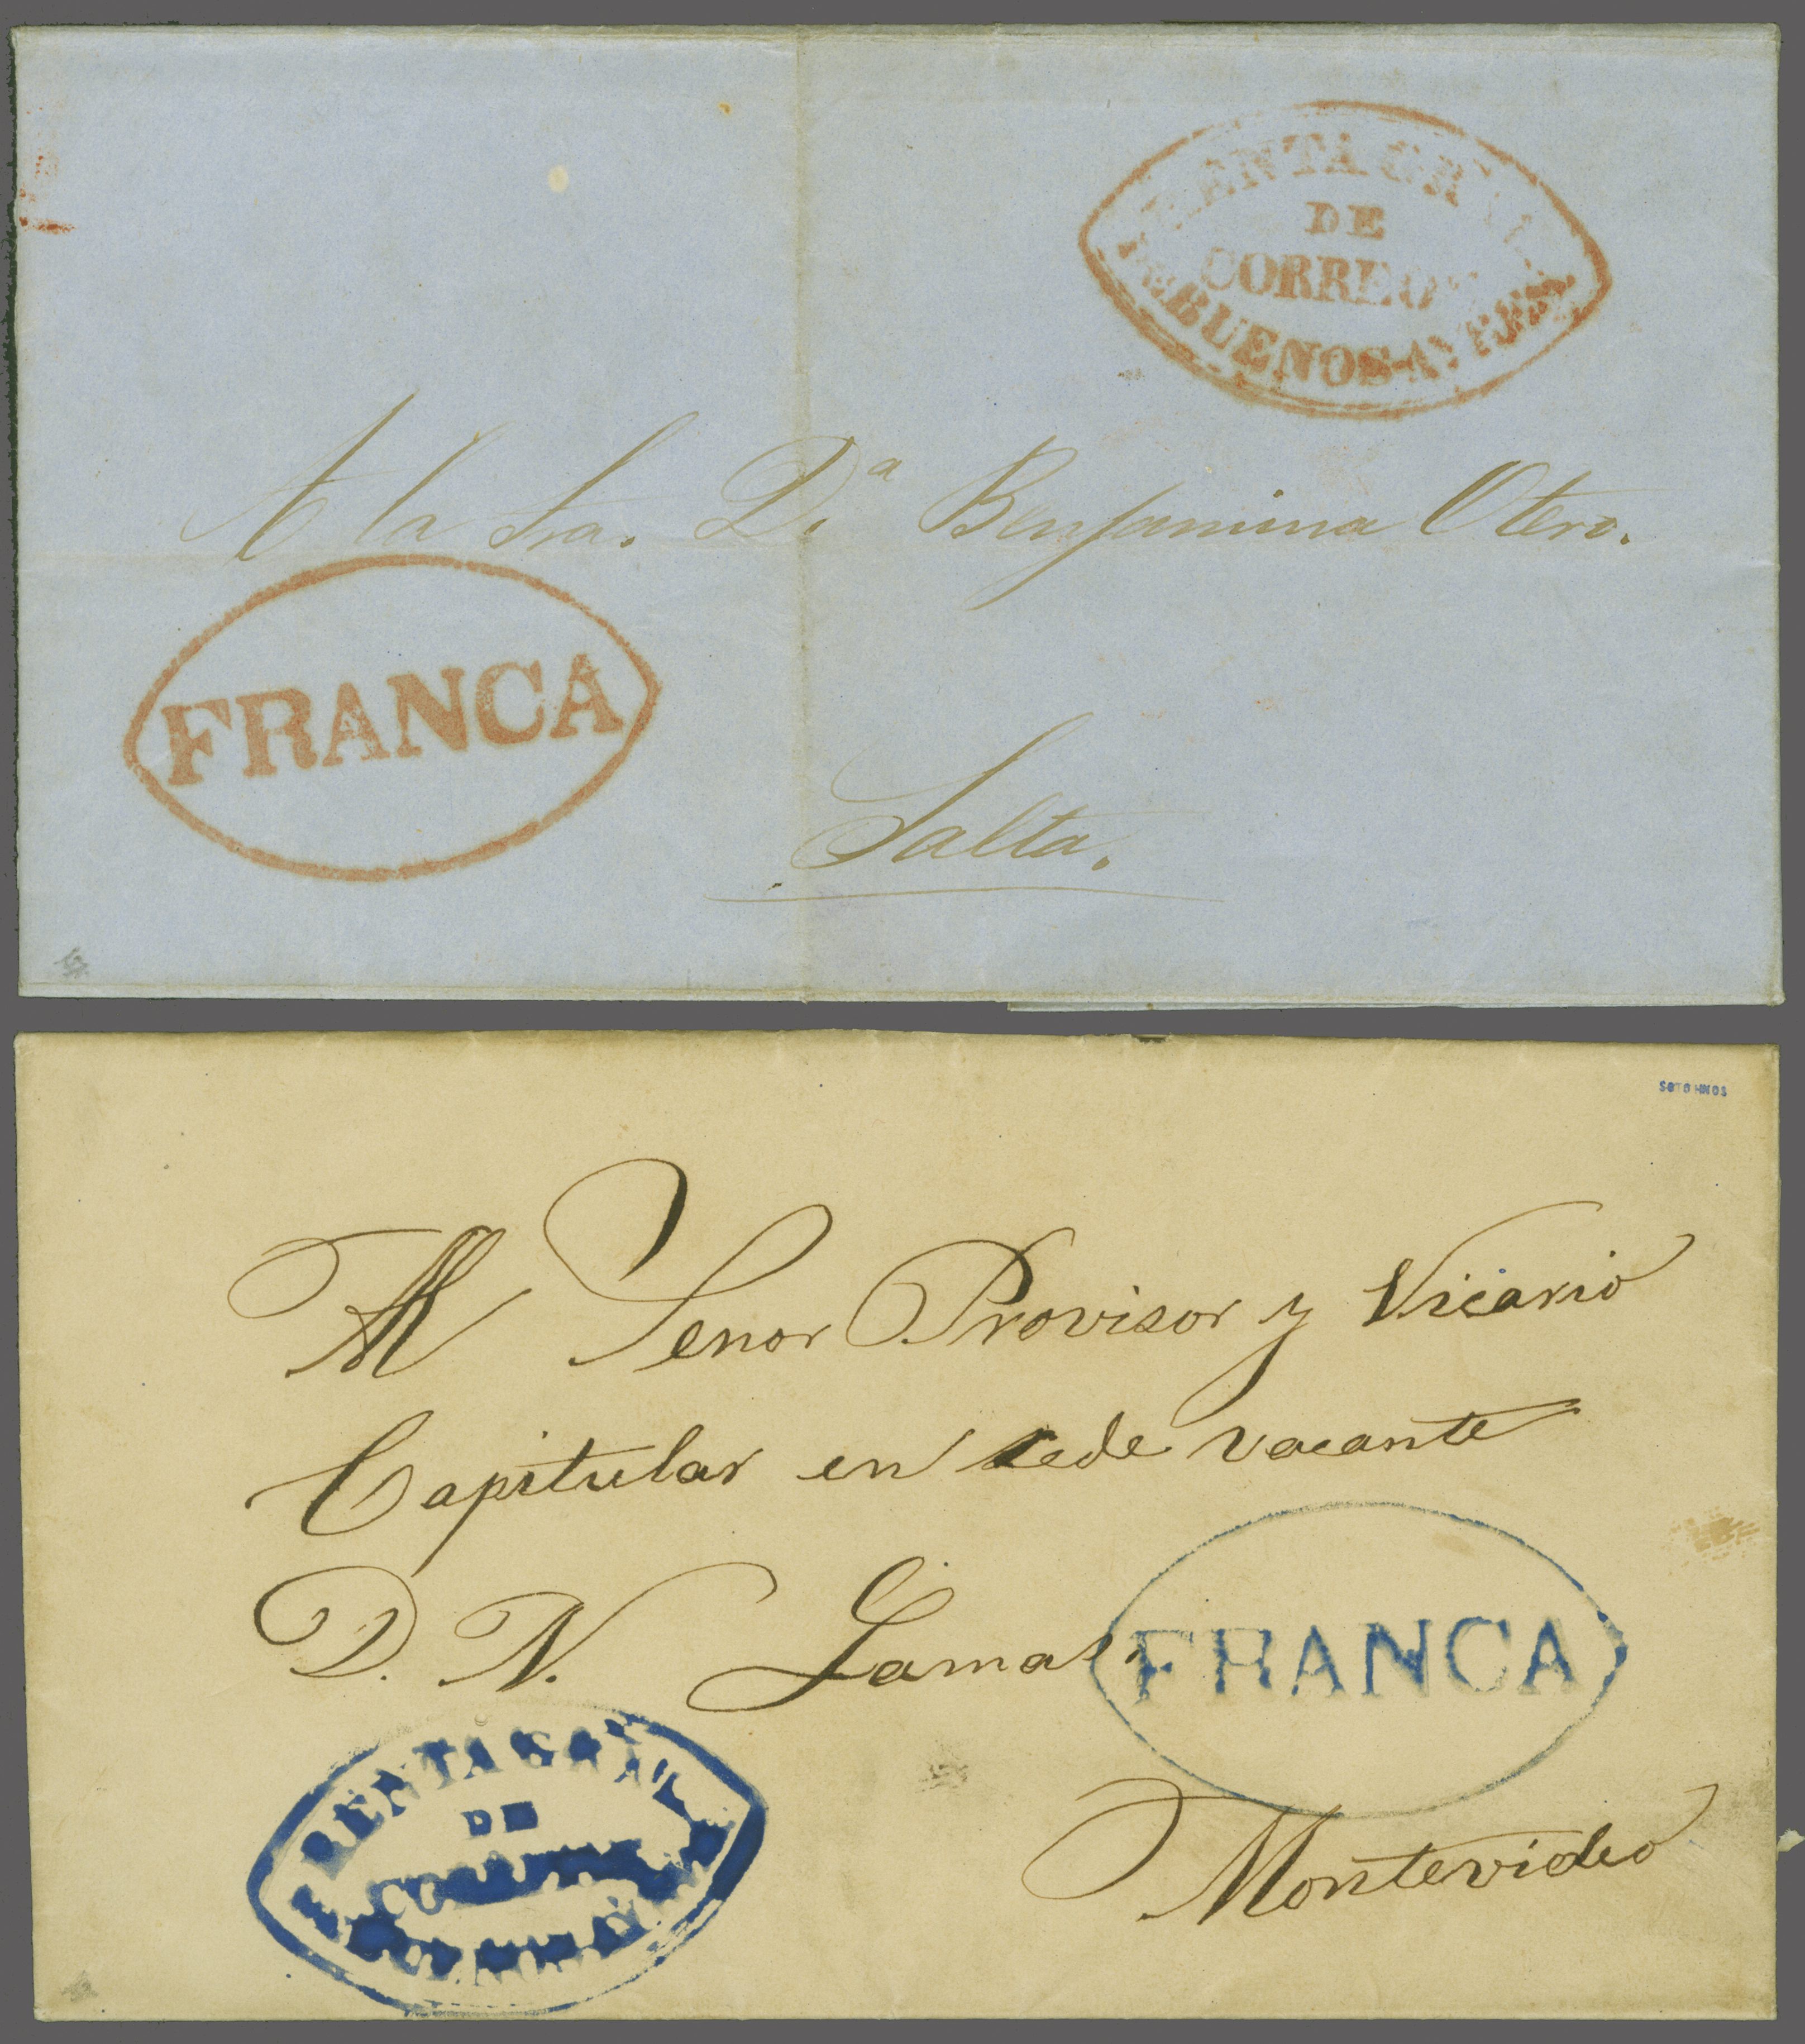 RENTA GRAL
DE
CORREOS
DE BUENOS-AYRES
A la Sra. D.ª Benjamina Otero.
FRANCA
Salta.
SOTO HNOS
Al Senor Provisor y Vicario
Capitular en sede vacante
D. N. Lamas
FRANCA
RENTA GRAL
DE
Montevideo